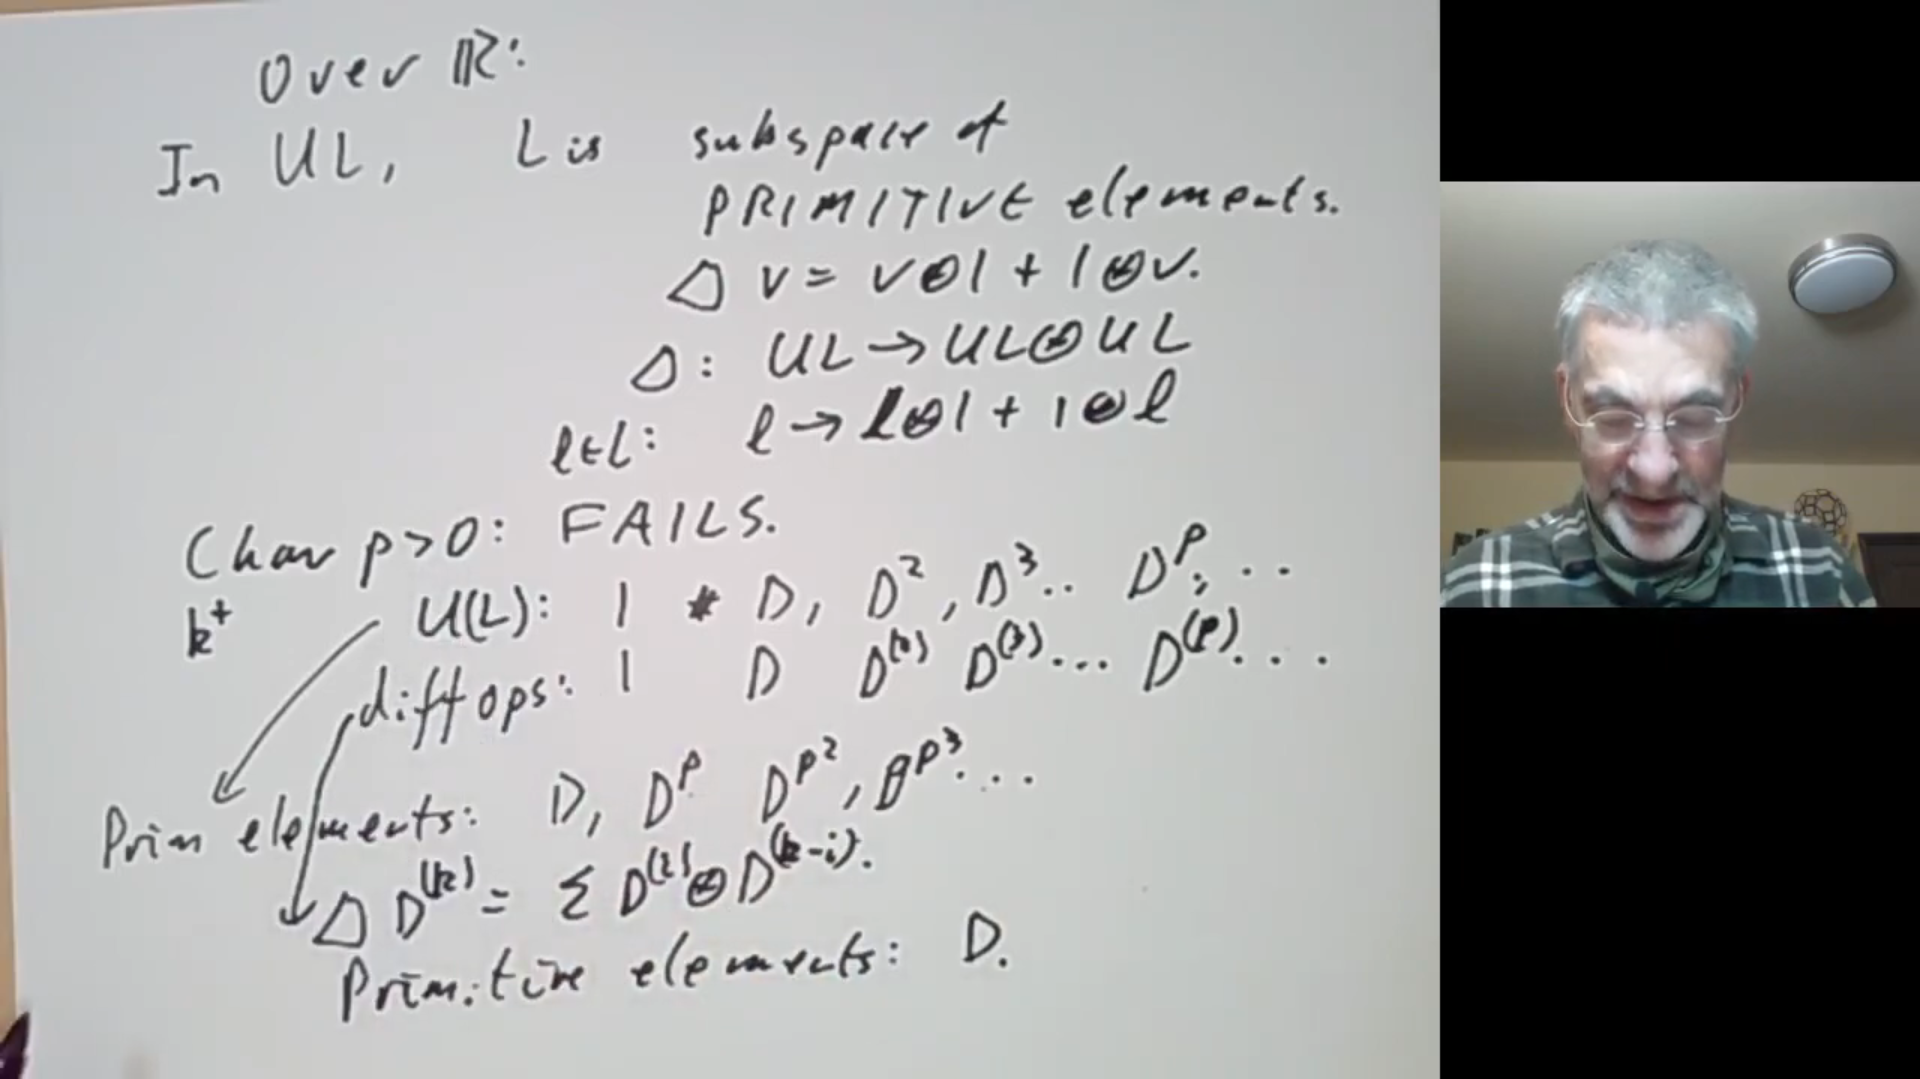 Over ℝ:
In UL, L is subspace of
PRIMITIVE elements.
Δ v = v⊗1 + 1⊗v.
Δ: UL → UL⊗UL
l∈L: l → l⊗1 + 1⊗l
Char p>0: FAILS.
k⁺ U(L): 1 D, D², D³.. Dᵖ, ..
diff ops: 1 D D⁽²⁾ D⁽³⁾... D⁽ᵖ⁾...
Prim elements: D, D^p D^{p^2}, D^{p^3}...
Δ D^{(k)} = Σ D^{(i)}⊗D^{(k-i)}.
Primitive elements: D.